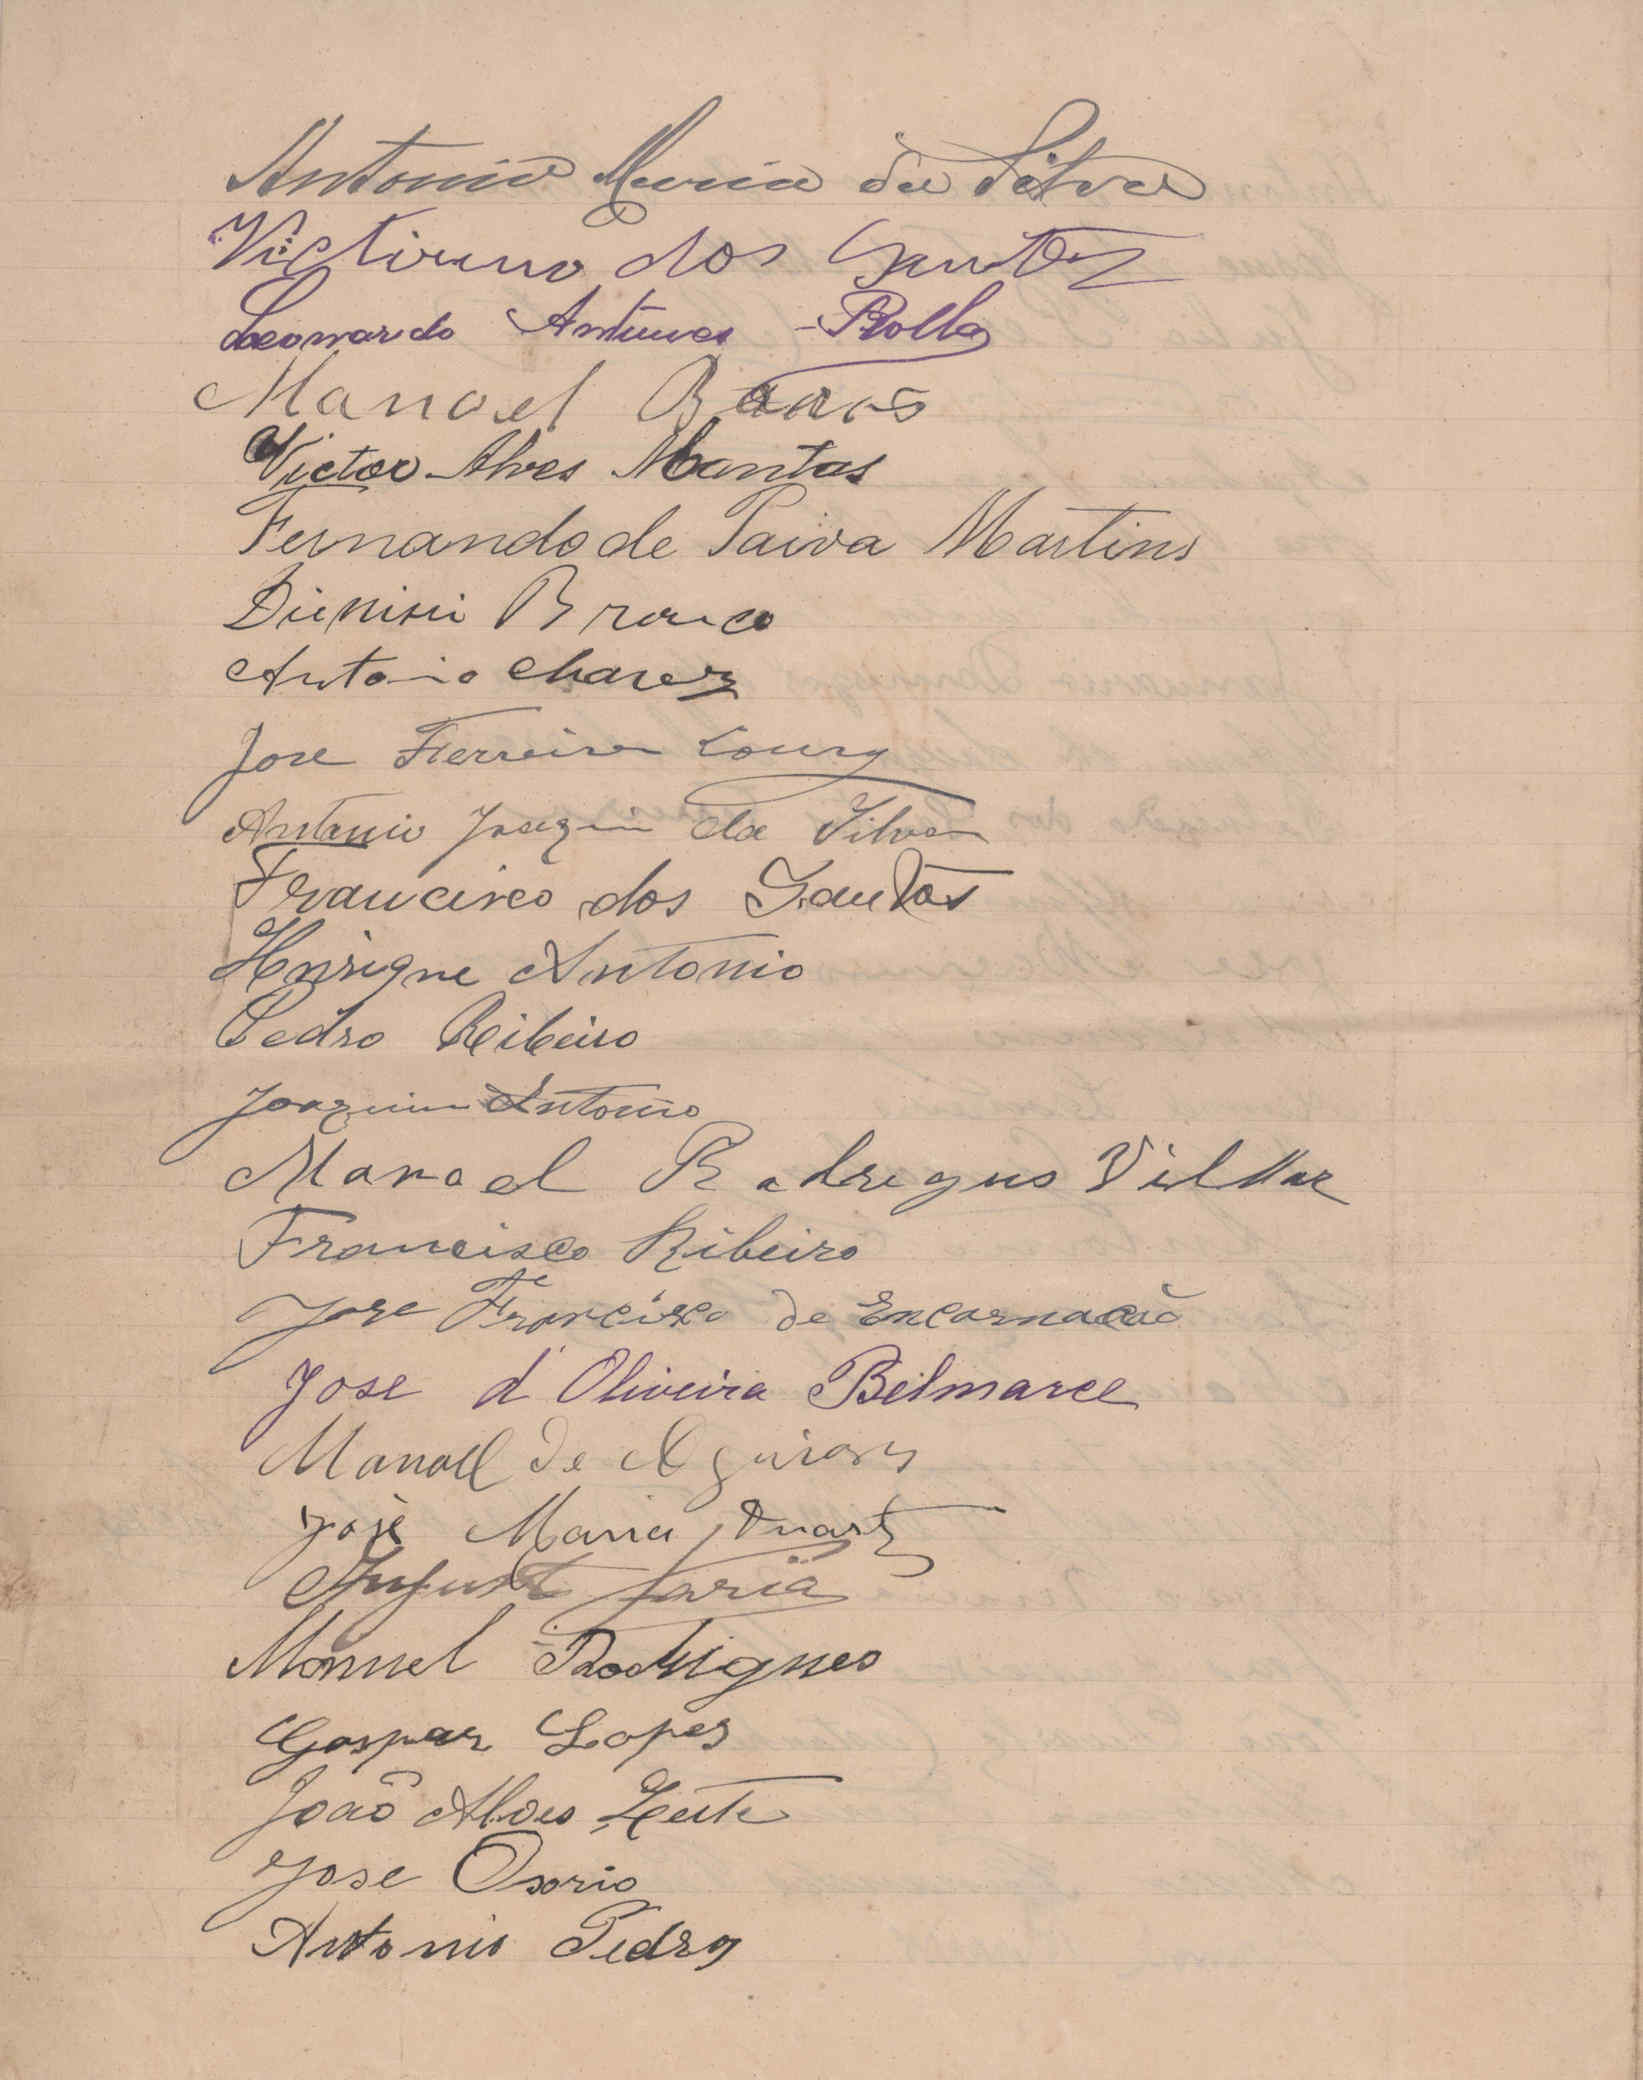 Antonio Maria da Silva
Victirino dos Santos
Leonardo Antunes Rolla
Manoel
Victor Alves Mantas
Fernando de Paiva Martins
Dienisii Branco
Antonio Chavez
Jose Ferreira Loury
Antonio Joaqim da Silva
Francisco dos Santos
Henrique Antonio
Pedro Ribeiro
Joaquim Antonio
Manoel Rodregus Villar
Francisco Ribeiro
Jose Francisco de Encarnação
Jose d'Oliveira Belmarce
Manoel de
José Maria Duarte
Faria
Manuel Rodrigues
Gaspar Lopes
João Alves Leite
Jose Osorio
Antonio Pedro